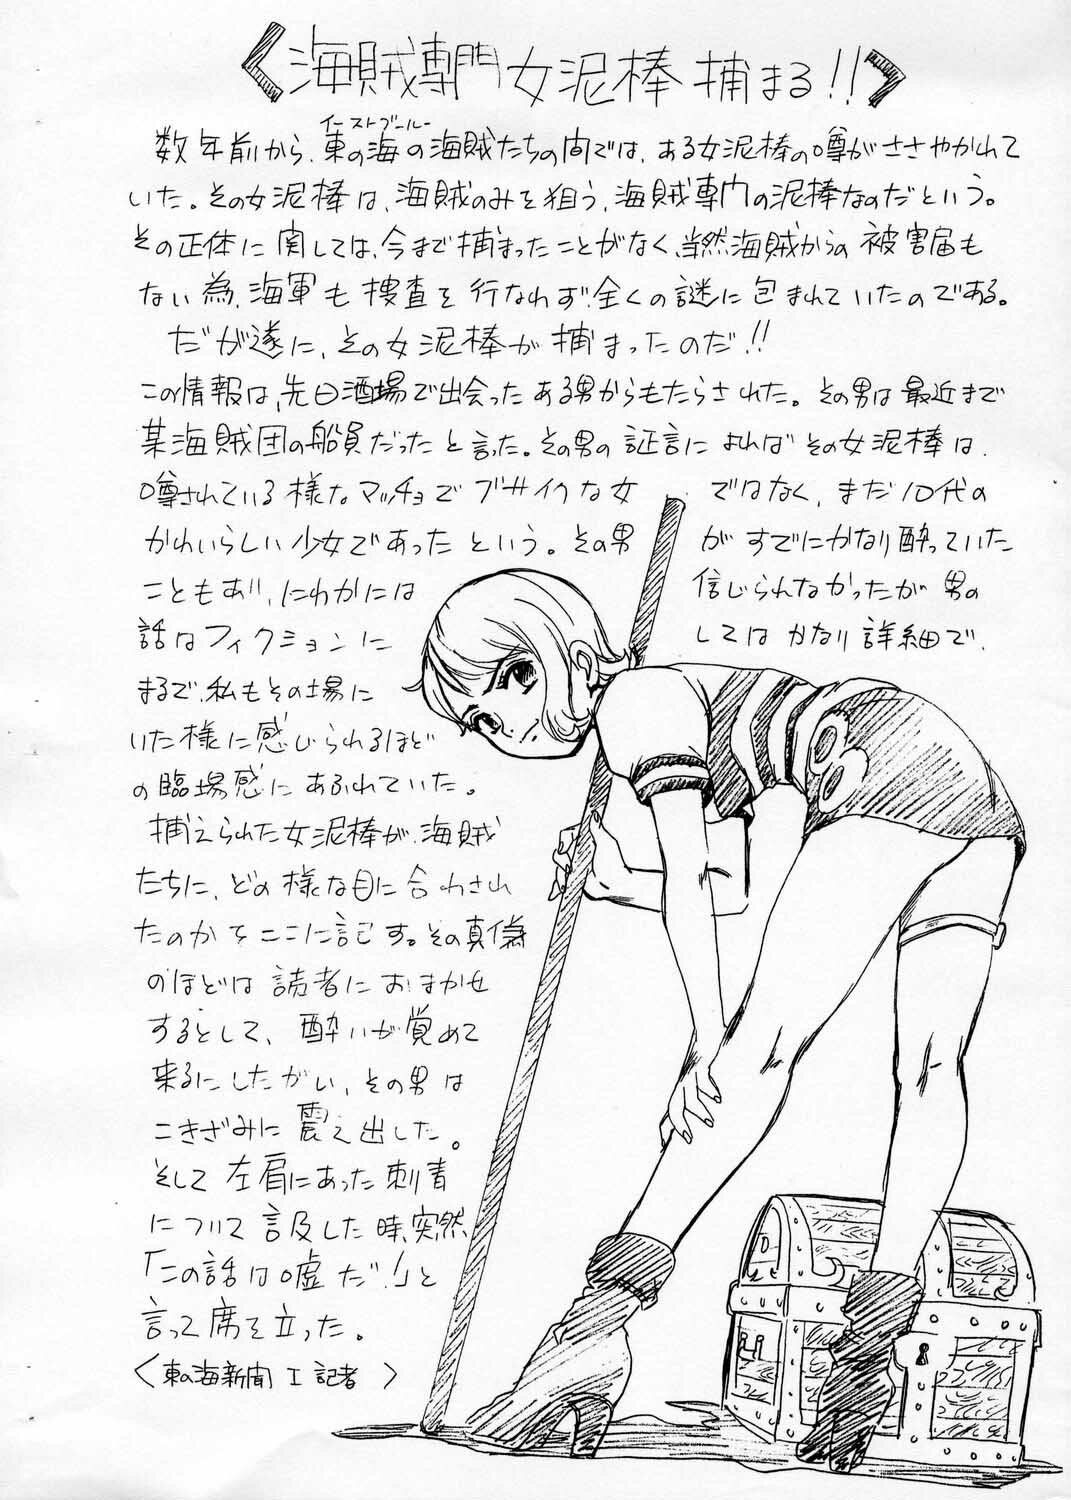 <海賊専門女泥棒 捕まる!!>
イーストブルー
数年前から、東の海の海賊たちの間では、ある女泥棒の噂がささやかれて
いた。その女泥棒は、海賊のみを狙う、海賊専門の泥棒なのだという。
その正体に関しては、今まで捕まったことがなく、当然海賊からの被害届も
ない為、海軍も捜査を行なわず、全くの謎に包まれていたのである。
だが遂に、その女泥棒が捕まったのだ!!
この情報は、先日酒場で出会ったある男からもたらされた。その男は最近まで
某海賊団の船員だったと言った。その男の証言によればその女泥棒は、
噂されている様なマッチョでブサイクな女ではなく、まだ10代の
かわいらしい少女であったという。その男がすでにかなり酔っていた
こともあり、にわかには信じられなかったが男の
話はフィクションにしてはかなり詳細で、
まるで、私もその場に
いた様に感じられるほど
の臨場感にあふれていた。
捕えられた女泥棒が、海賊
たちに、どの様な目に合わされ
たのかをここに記す。その真偽
のほどは読者におまかせ
するとして、酔いが覚めて
来るにしたがい、その男は
こきざみに震え出した。
そして左肩にあった刺青
について言及した時、突然
「この話は嘘だ!」と
言って席を立った。
<東の海新聞 I記者>